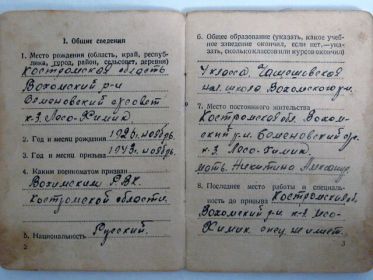 I. Общие сведения
1. Место рождения (область, край, респуб-
лика, город, район, сельсовет, деревня)
Костромская область
Вохомский р-н
Семеновский с/совет
к-з Лесо-Химик
2. Год и месяц рождения 1926, ноябрь.
3. Год и месяц призыва 1943, ноябрь.
4. Каким военкоматом призван
Вохомским РВК.
Костромской области.
5. Национальность Русский.
2
6. Общее образование (указать, какое учеб-
ное заведение окончил, если нет,—ука-
зать, сколько классов или курсов окончил)
4 класса,
нач. школа Вохомского р-н.
7. Место постоянного жительства
Костромская обл. Вохом-
ский р-н.
к-з Лесо-Химик
мать. Никитина
8. Последнее место работы и специаль-
ность до призыва Костромская обл.
Вохомский р-н к-з Лесо-
Химик
3